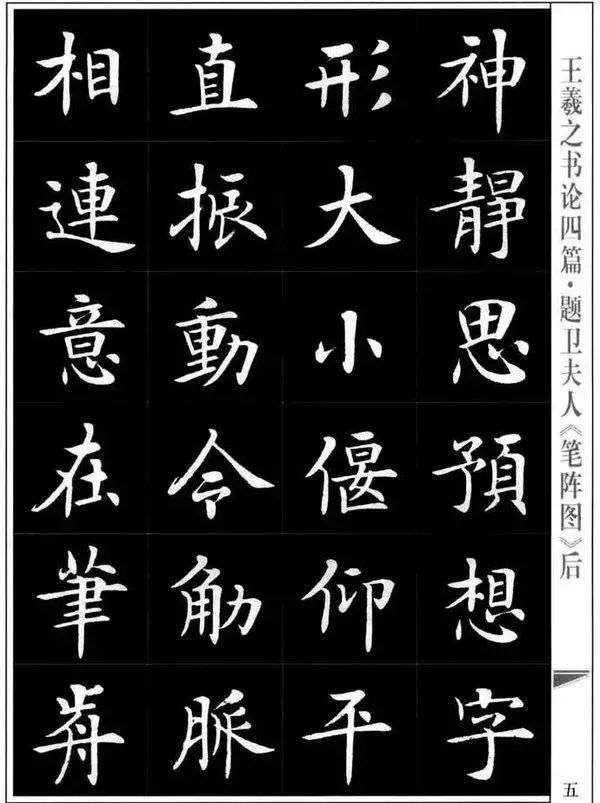 王羲之书论四篇·题卫夫人《笔阵图》后
神靜思預想字
形大小偃仰平
直振動令觔脈
相連意在筆歬
五